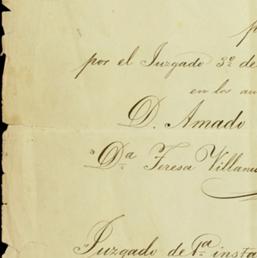 por el Juzgado 3º de
en los au
D. Amado
a Dª Teresa Villanu
Juzgado de 1ª insta